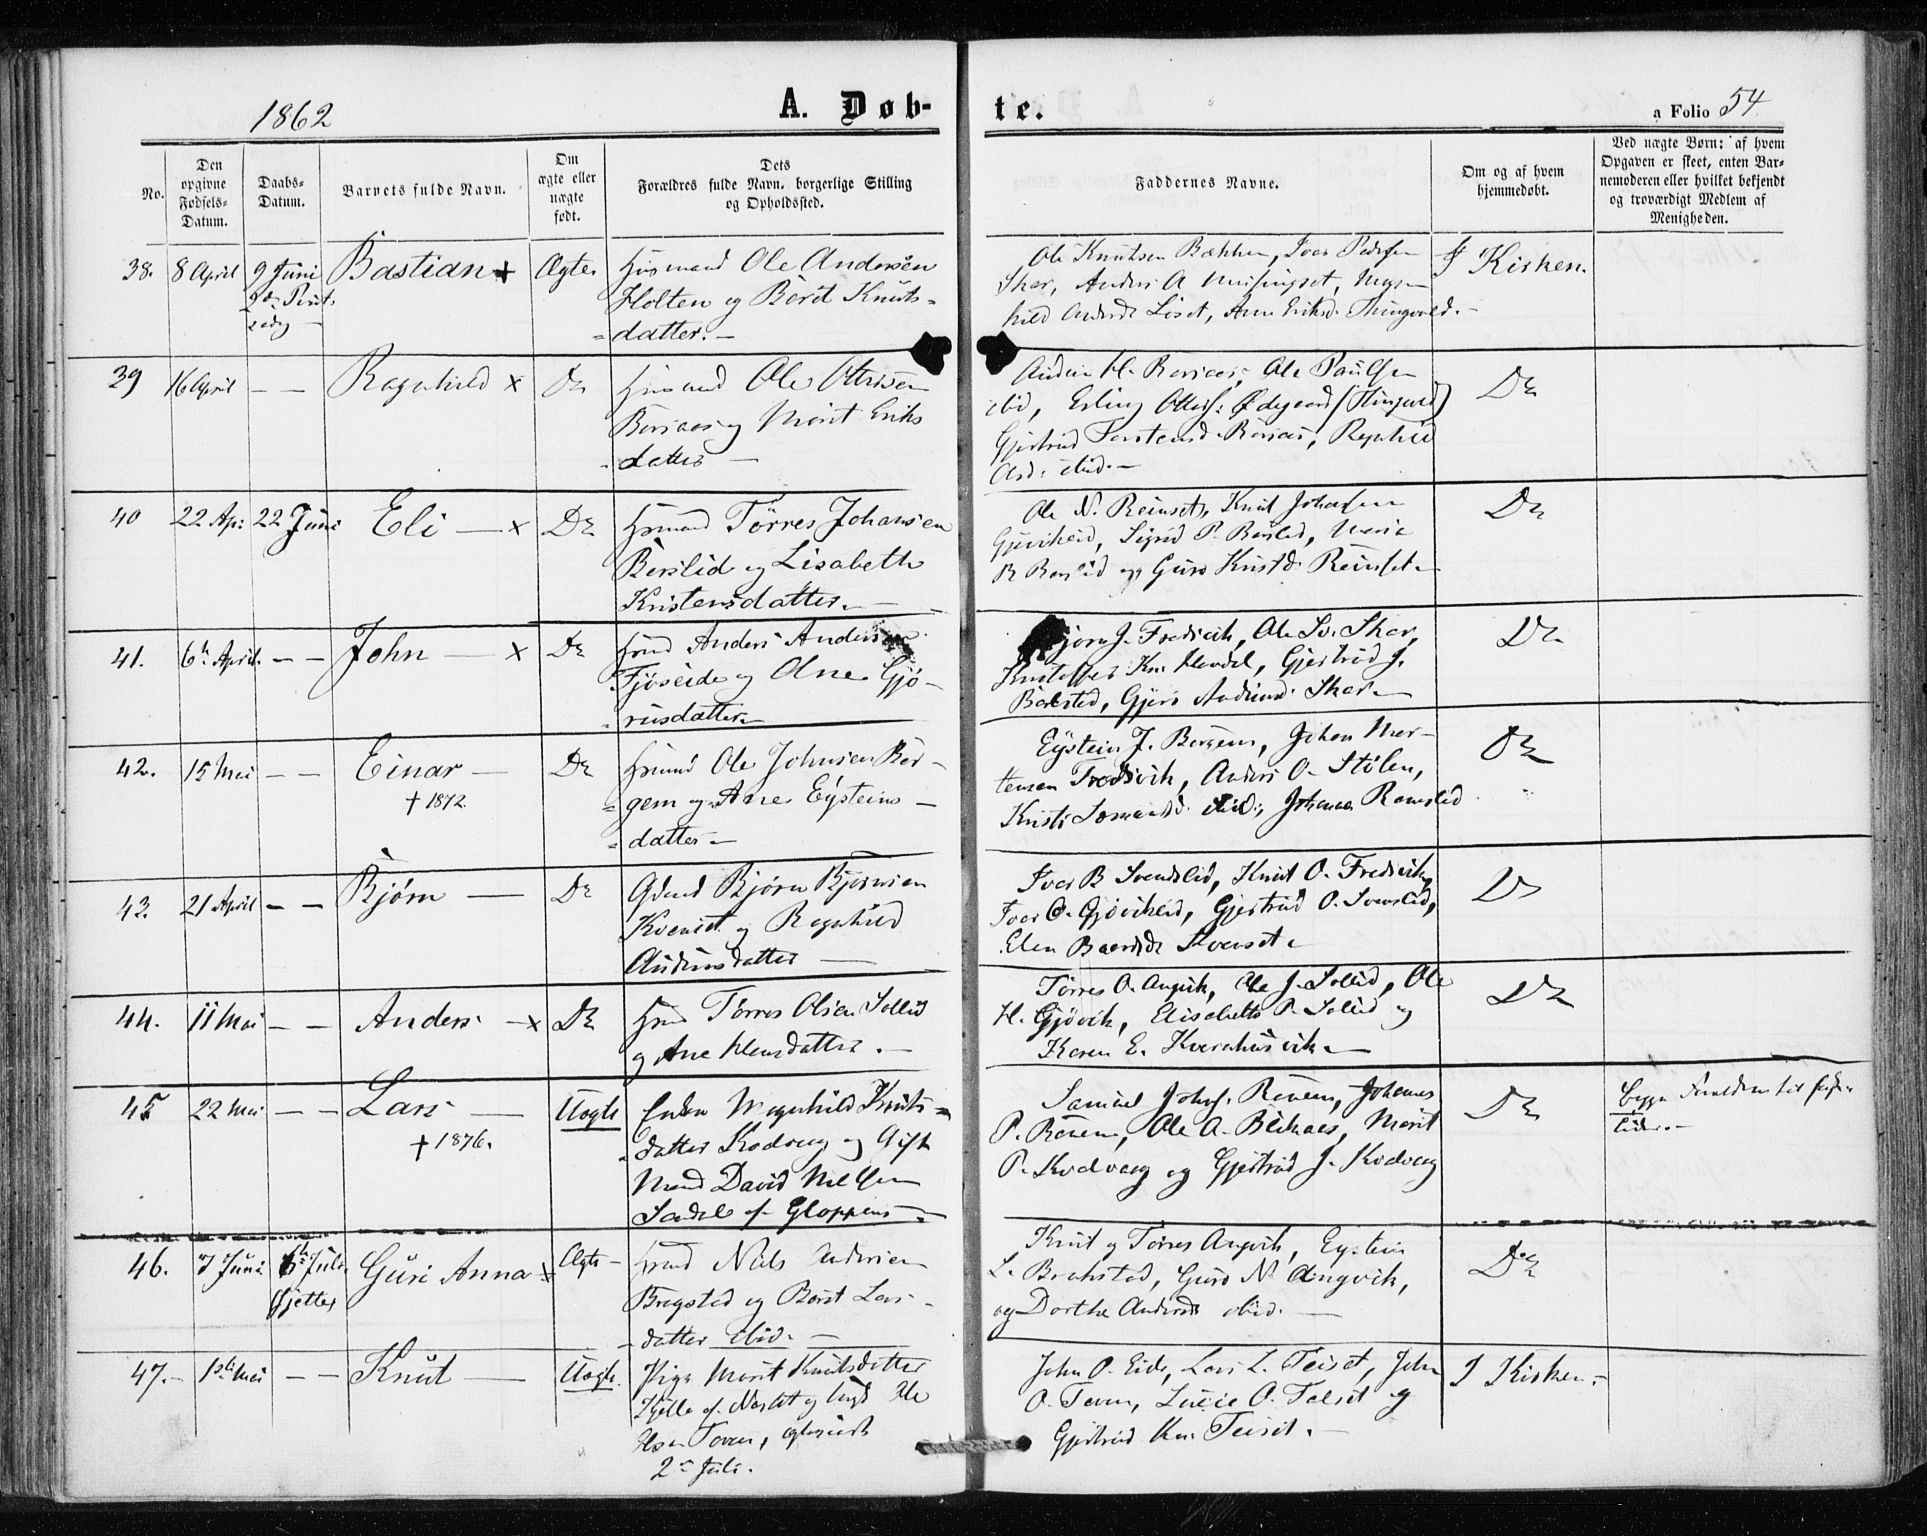 1862
A. Døb-
te.
a Folio 54
No.
Den
opgivne
Fødsels-
Datum.
Daabs-
Datum.
Barnets fulde Navn.
Om
ægte eller
uægte
født.
Dets
Forældres fulde Navn, borgerlige Stilling
og Opholdssted.
Faddernes Navne.
Om og af hvem
hjemmedøbt.
Ved uægte Børn: af hvem
Opgaven er skeet, enten Bar-
nemoderen eller hvilket bekjendt
og troværdigt Medlem af
Menigheden.
38. 8 April 9 Juni Bastian x Ægte
2den
Husmand Ole Andersen
Holten og Berit Knuts-
datter.-
Ole Knutsen Bækken, Iver Pedersen
Skar, Anders A
hild Andersd Liset, Anne Eriksd. Thingvold.-
I Kirken.
39 16 April - - Ragnhild x Do
Husmand Ole Ottesen
Børsaas og Marit Eriks
datter -
Ole Paulsen
ibid, Erling Ottes: Ødegaard (Thingvold)
Gjertrud Torstensd. Børsaas, Ragnhild
ibid.-
Do
40 22 Ap: 22 Juni Eli - x Do
Husmand Tørres Johansen
Berslid og Lisabeth
Kristensdatter. -
Ole N. Reinset, Knut Johansen
Gjøvikeid, Sigrid P. Berslid, Marie
R Berslid og Guro Knutsd. Reinset.
Do
41. 6te April. - - John - x Do
Anders Andersen
Fjøseide og Ane Gjø-
rusdatter.-
Bjørn J. Fredsvik, Ole Sv. Skar,
Kristoffer Kn. Gjertrud J.
Skar.-
Do
42. 15 Mai - - Einar - Do
† 1872.
Ole Johnsen Ber-
gem og Ane Eysteins-
datter -
Eystein J. Bergem, Johan Mor-
tensen Fredsvik, Anders O. Stølen,
Kristi ibid:, Johanna Ramslid
Do
43. 21 April - - Bjørn - Do
Gdmd Bjørn Bjørnsen
Kvenset og Ragnhild
Audunsdatter -
Iver B Svenslid, Knut O. Fredsvik,
Iver O. Gjøvikeid, Gjertrud O. Svenslid,
Elen Baardsd Kvenset.
Do
44. 11 Mai - - Anders - x Do
Tørres Olsen Sollid
og Ane Hansdatter. -
Tørres O. Angvik, Ole J. Sollid, Ole
H. Gjøvik, Elisabeth P. Sollid og
Karen E. Kvernhusvik. -
Do
45 22 Mai - - Lars - Uægte
† 1876.
Enken Magnhild Knuts-
datter Kodvaag og Gift
Mand David Nielsen
Sandal af Gloppen -
Samuel Johns. Reuem, Johannes
P. Reuem, Ole A. Bliknes, Marit
P. Kvdvaag og Gjertrud J. Kvdvaag
Do
Begge
46. 7 Juni 6te Juli Guri Anna x Ægte -
Niels Andersen
Bragstad og Berit Lars-
datter ibid. -
Knut og Tørres Angvik, Eystein
L. Brakstad, Guro N. Angvik,
og Dorthe Andersd ibid. -
Do
47.- 1ste Mai - - Knut - Uægte.
Pige Marit Knutsdatter
Kjelle af Nesset og Ungk Ole
2n Juli.
John O. Eide, Lars L. Teiset, John
O. Toven, Lucie O. Talset og
Gjertrud Kn. Teiset. -
I Kirken.-